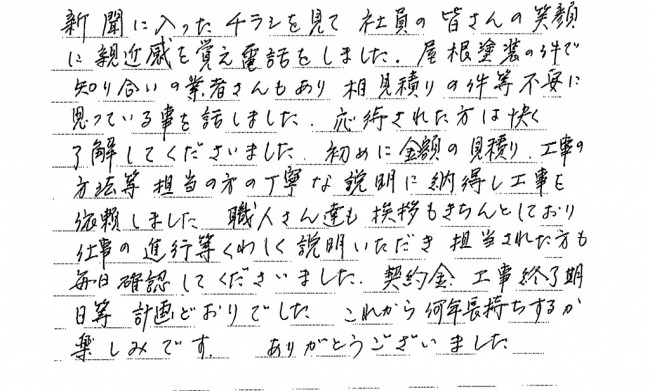 新聞に入ったチラシを見て 社員の皆さんの笑顔
に親近感を覚え電話をしました. 屋根塗装の件で
知り合いの業者さんもあり 相見積りの件等不安に
思っている事を話しました. 応待された方は快く
了解してくださいました 初めに金額の見積り. 工事の
方法等 担当の方の丁寧な説明に納得し工事を
依頼しました 職人さん達も挨拶もきちんとしており
仕事の進行等くわしく説明いただき 担当された方も
毎日確認してくださいました. 契約金. 工事終了期
日等 計画どおりでした これから何年長持ちするか
楽しみです. ありがとうございました